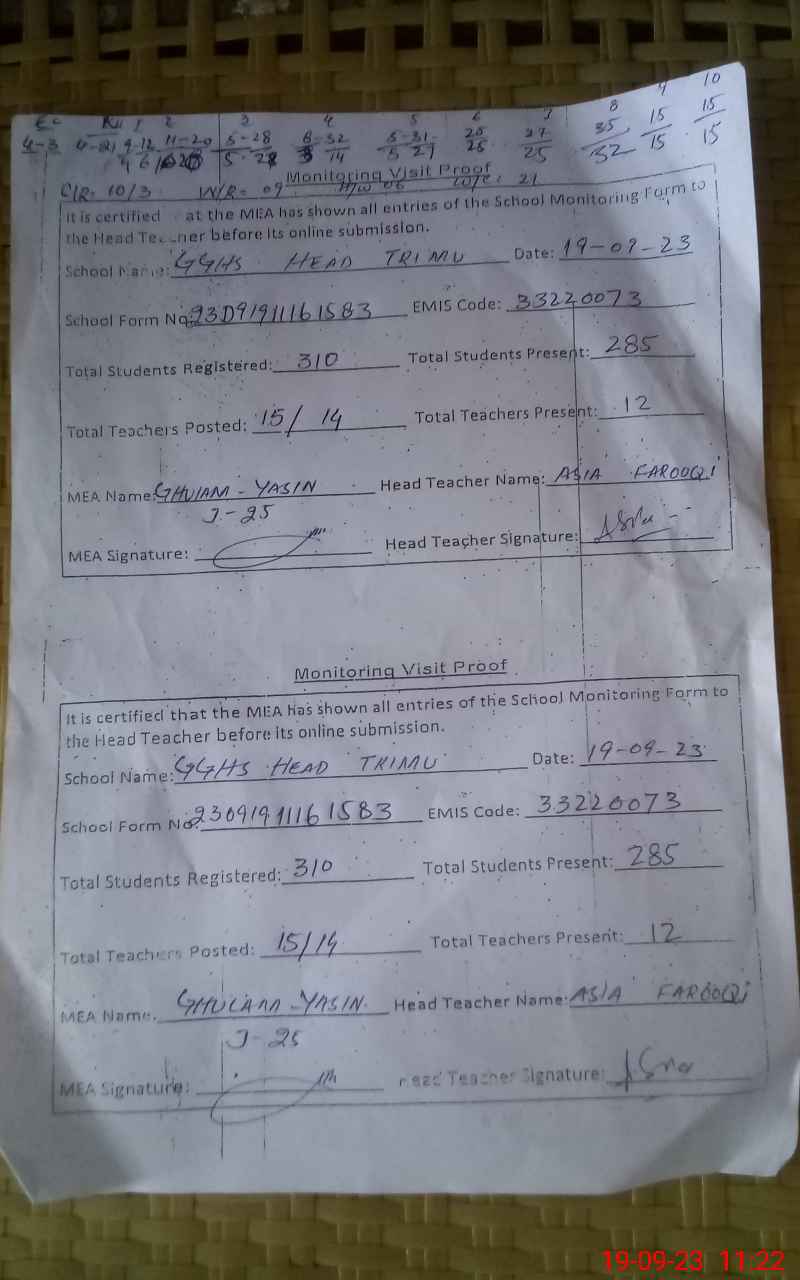 1 2 3 4 5 6 7 8 9 10
4-3 5-28 5-31 25 27 35 15 15
14 5 27 25 25 32 15 15
Monitoring Visit Proof
CIR- 10/3 W/R- 09 21
It is certified at the MEA has shown all entries of the School Monitoring Form to
the Head Te her before its online submission.
School Name: GGHS HEAD TRIMU Date: 19-09-23
School Form No. 23091911161583 EMIS Code: 33220073
Total Students Registered: 310 Total Students Present: 285
Total Teachers Posted: 15/ 14 Total Teachers Present: 12
MEA Name: GHULAM-YASIN Head Teacher Name: ASIA FAROOQI
J-25
MEA Signature: Head Teacher Signature: Asma
Monitoring Visit Proof
It is certified that the MEA has shown all entries of the School Monitoring Form to
the Head Teacher before its online submission.
School Name: GGHS HEAD TRIMU Date: 19-09-23
School Form No. 23091911161583 EMIS Code: 33220073
Total Students Registered: 310 Total Students Present: 285
Total Teachers Posted: 15/14 Total Teachers Present: 12
MEA Name. GHULAM-YASIN Head Teacher Name: ASIA FAROOQI
J-25
MEA Signature: Head Teacher Signature:
19-09-23 11:22